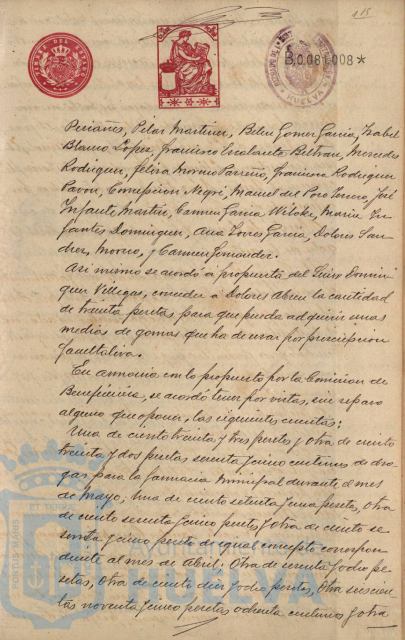 115
B.0.081.008*
HUELVA
Periañes, Pilar Martinez, Belen Gomez Garcia, Isabel
Blanco Lopez, Francisco Escalante Beltran, Mercedes
Rodriguez, Felisa Moreno Parreño, Francisca Rodriguez
Pavon, Concepcion Negri, Manuel del Pozo, José
Infante Martin, Carmen Garcia, Maria In-
fantes Dominguez, Ana Torres Garcia, Dolores San-
chez, Moreno, y Carmen Fernandez.
Asi mismo se acordó a propuesta del Señor Domin-
guez Villegas, conceder á Dolores Abreu la cantidad
de treinta pesetas para que pueda adquirir unas
medias de gomas que ha de usar por prescripcion
facultativa.
En armonia con lo propuesto por la Comision de
Beneficencia, se acordó tener por vistas, sin reparo
alguno que oponer, las siguientes cuentas:
Una de ciento treinta y tres pesetas y otra de ciento
treinta y dos pesetas sesenta y cinco centimos de dro-
gas para la farmacia municipal durante el mes
de Mayo, Una de ciento setenta y una pesetas, Otra
de ciento sesenta y cinco pesetas y Otra de ciento se-
senta y cinco pesetas de igual concepto correspon-
diente al mes de Abril; Otra de sesenta y ocho pe-
setas, Otra de ciento diez y ocho pesetas, Otra
tas noventa y cinco pesetas ochenta centimos y otra
PORTUS MARIS
ET TERRÆ
Ayuntamiento
HUELVA